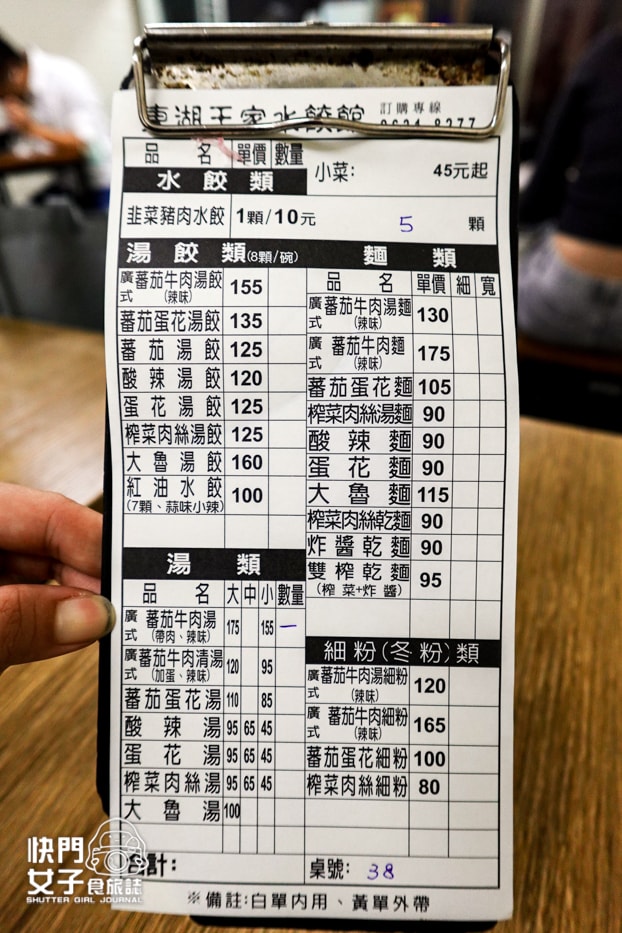 東湖王家水餃館 訂購專線
品名 單價 數量
小菜: 45元起
水餃類
韭菜豬肉水餃 1顆/10元 5 顆
湯餃類(8顆/碗)
廣式 蕃茄牛肉湯餃 (辣味) 155
蕃茄蛋花湯餃 135
蕃茄湯餃 125
酸辣湯餃 120
蛋花湯餃 125
榨菜肉絲湯餃 125
大魯湯餃 160
紅油水餃 100
(7顆、蒜味小辣)
湯類
品名 大 中 小 數量
廣式 蕃茄牛肉湯 (帶肉、辣味) 175 155 一
廣式 蕃茄牛肉清湯 (加蛋、辣味) 120 95
蕃茄蛋花湯 110 85
酸辣湯 95 65 45
蛋花湯 95 65 45
榨菜肉絲湯 95 65 45
大魯湯 100
麵類
品名 單價 細 寬
廣式 蕃茄牛肉湯麵 (辣味) 130
廣式 蕃茄牛肉麵 (辣味) 175
蕃茄蛋花麵 105
榨菜肉絲湯麵 90
酸辣麵 90
蛋花麵 90
大魯麵 115
榨菜肉絲乾麵 90
炸醬乾麵 90
雙榨乾麵 95
(榨菜+炸醬)
細粉(冬粉)類
廣式 蕃茄牛肉湯細粉 (辣味) 120
廣式 蕃茄牛肉細粉 (辣味) 165
蕃茄蛋花細粉 100
榨菜肉絲細粉 80
合計:
桌號: 38
※備註:白單內用、黃單外帶
快門女子食旅誌
SHUTTER GIRL JOURNAL